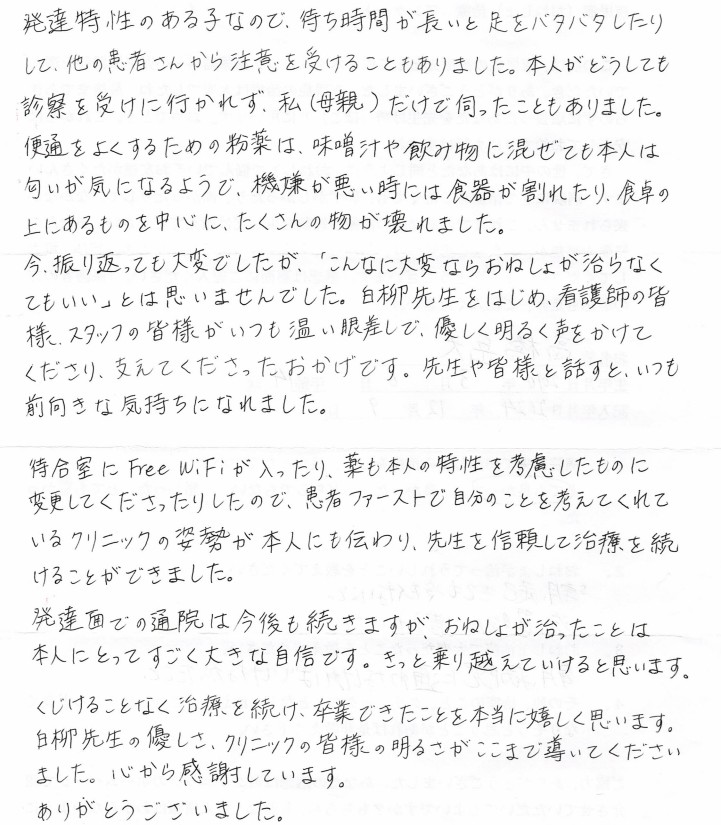 発達特性のある子なので、待ち時間が長いと足をバタバタしたり
して、他の患者さんから注意を受けることもありました。本人がどうしても
診察を受けに行かれず、私(母親)だけで伺ったこともありました。
便通をよくするための粉薬は、味噌汁や飲み物に混ぜても本人は
匂いが気になるようで、機嫌が悪い時には食器が割れたり、食卓の
上にあるものを中心に、たくさんの物が壊れました。
今、振り返っても大変でしたが、「こんなに大変ならおねしょが治らなく
てもいい」とは思いませんでした。白柳先生をはじめ、看護師の皆
様、スタッフの皆様がいつも温い眼差しで、優しく明るく声をかけて
くださり、支えてくださったおかげです。先生や皆様と話すと、いつも
前向きな気持ちになれました。
待合室にFree WiFiが入ったり、薬も本人の特性を考慮したものに
変更してくださったりしたので、患者ファーストで自分のことを考えてくれて
いるクリニックの姿勢が本人にも伝わり、先生を信頼して治療を続
けることができました。
発達面での通院は今後も続きますが、おねしょが治ったことは
本人にとってすごく大きな自信です。きっと乗り越えていけると思います。
くじけることなく治療を続け、卒業できたことを本当に嬉しく思います。
白柳先生の優しさ、クリニックの皆様の明るさがここまで導いてください
ました。心から感謝しています。
ありがとうございました。